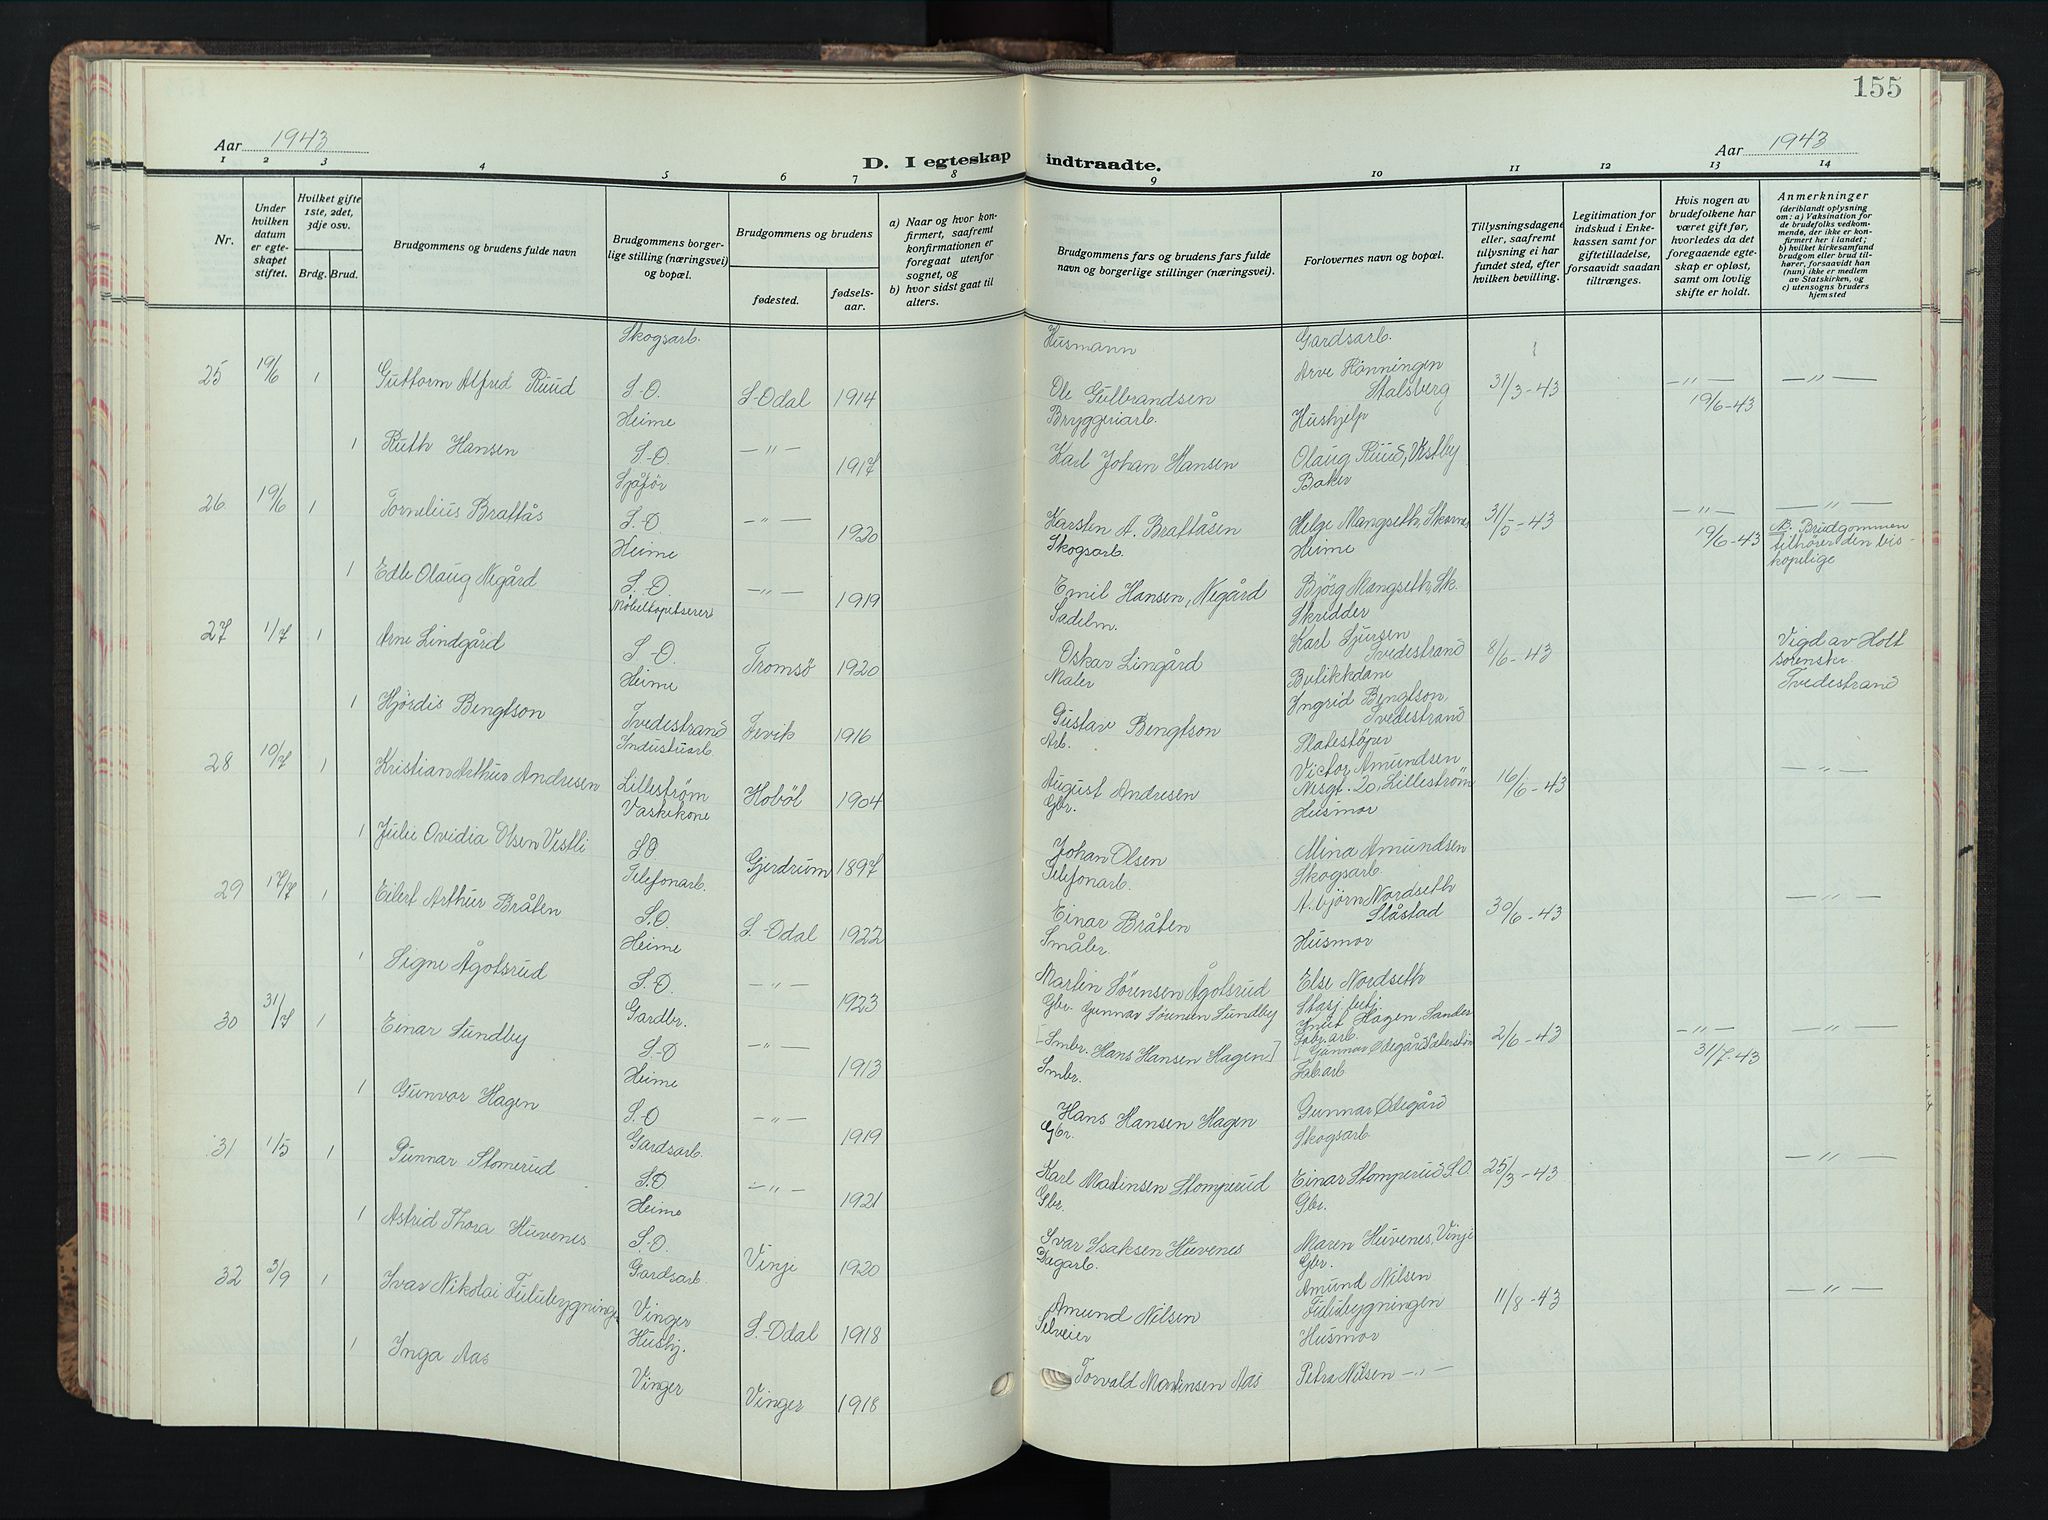 155
Aar 1943
D. I egteskap indtraadte.
Aar 1943
1 2 3 4 5 6 7 8 9 10 11 12 13 14
Nr.
Under hvilken datum er egteskapet stiftet.
Hvilket gifte 1ste, 2det, 3dje osv.
Brdg. Brud.
Brudgommens og brudens fulde navn
Brudgommens borgerlige stilling (næringsvei) og bopæl.
Brudgommens og brudens
fødested.
fødselsaar.
a) Naar og hvor konfirmert, saafremt konfirmationen er foregaat utenfor sognet, og
b) hvor sidst gaat til alters.
Brudgommens fars og brudens fars fulde navn og borgerlige stillinger (næringsvei).
Forlovernes navn og bopæl.
Tillysningsdagene eller, saafremt tillysning ei har fundet sted, efter hvilken bevilling.
Legitimation for indskud i Enkekassen samt for giftetilladelse, forsaavidt saadan tiltrænges.
Hvis nogen av brudefolkene har været gift før, hvorledes da det foregaaende egteskap er opløst, samt om lovlig skifte er holdt.
Anmerkninger (deriblandt oplysning om: a) Vaksination for de brudefolks vedkommende, der ikke er konfirmert her i landet; b) hvilket kirkesamfund brudgom eller brud tilhører, forsaavidt han (hun) ikke er medlem av Statskirken, og c) utensogns bruders hjemsted
Skogsarb. Husmann Gardsarb.
25 19/6 1 Guttorm Alfred Ruud S-O. S-Odal 1914 Ole Gulbrandsen Arve Hønningen Stalsberg 31/3-43 —"— 19/6-43 —"—
Heime Bryggeriarb. Hushjelp
1 Ruth Hansen S-O. —"— 1917 Karl Johan Hansen Olaug Ruud, Vestby
Sjåfør Baker
26 19/6 1 Tornelius Braftås S.-O —"— 1920 Karsten A. Braftåsen Helge Mangseth, 31/5-43 —"— 19/6-43 —"— NB. Brudgommen tilhører den biskopelige
Heime Skogsarb. Heime
1 Edle Olaug Negård S.-O. —"— 1919 Emil Hansen, Negård Bjørg Mangseth, Sk.
Møbeltapetserer Sadelm. Skredder
27 1/7 1 Arne Lindgård S-O. Tromsö 1920 Oskar Lingård Karl Sjursen Tvedestrand 8/6-43 Vigd av Holt sorenskr. Tvedestrand
Heime Maler Butikkdame
1 Hjördis Bengtson Tvedestrand Fevik 1916 Gustav Bengtson Ingrid Bengtson, Tvedestrand
Industriarb Arb. Platestøper
28 10/7 1 Kristian Arthur Andresen Lillestrøm Hobøl 1904 August Andresen Victor Amundsen Nisgt. 20, Lillestrøm 16/6-43 —"—
Vaskekone Gbr. Husmor
1 Julie Ovidia Olsen Vestli SO Gjerdrum 1897 Johan Olsen Mina Amundsen
Telefonarb. Telefonarb. Skogsarb
29 17/7 1 Eilert Arthur Bråten S.O. S.-Odal 1922 Einar Bråten A. bjørn Nordseth Slåstad 30/6-43 —"—
Heime Småbr. Husmor
1 Signe Ågotsrud S.-O. —"— 1923 Martin Sörensen Ågotsrud Else Nordseth
Gardbr. Gbr. Gunnar Sörensen Sundby Stasj.betj.
30 31/7 1 Einar Sundby S-O —"— 1913 [Smbr. Hans Hansen Hagen] Knut Hagen, Sander Fabr.arb. [Gunnar Ødegård 2/6-43 —"— 31/7-43 —"—
Heime Smbr. Fab.arb
1 Gunvor Hagen S.-O —"— 1919 Hans Hansen Hagen Gunnar Ødegård
Gardsarb. Gbr. Skogsarb.
31 1/5 1 Gunnar Stomerud S.O —"— 1921 Karl Martinsen Stomperud Einar Stomperud S.O. 25/3-43 —"—
Heime Gbr. Gbr.
1 Astrid Thora Huvenes S.-O. Vinje 1920 Ivar Isaksen Huvenes Maren Huvenes, Vinje
Gardsarb. Dagarb. Gbr.
32 3/9 1 Ivar Nikolai Fulubygningen Vinger S.-Odal 1918 Amund Nilsen Amund Nilsen Fulubygningen 11/8-43 —"—
Husbj. Selveier Husmor
1 Inga Aas Vinger Vinger 1918 Torvald Martinsen Aas Petra Nilsen —"—